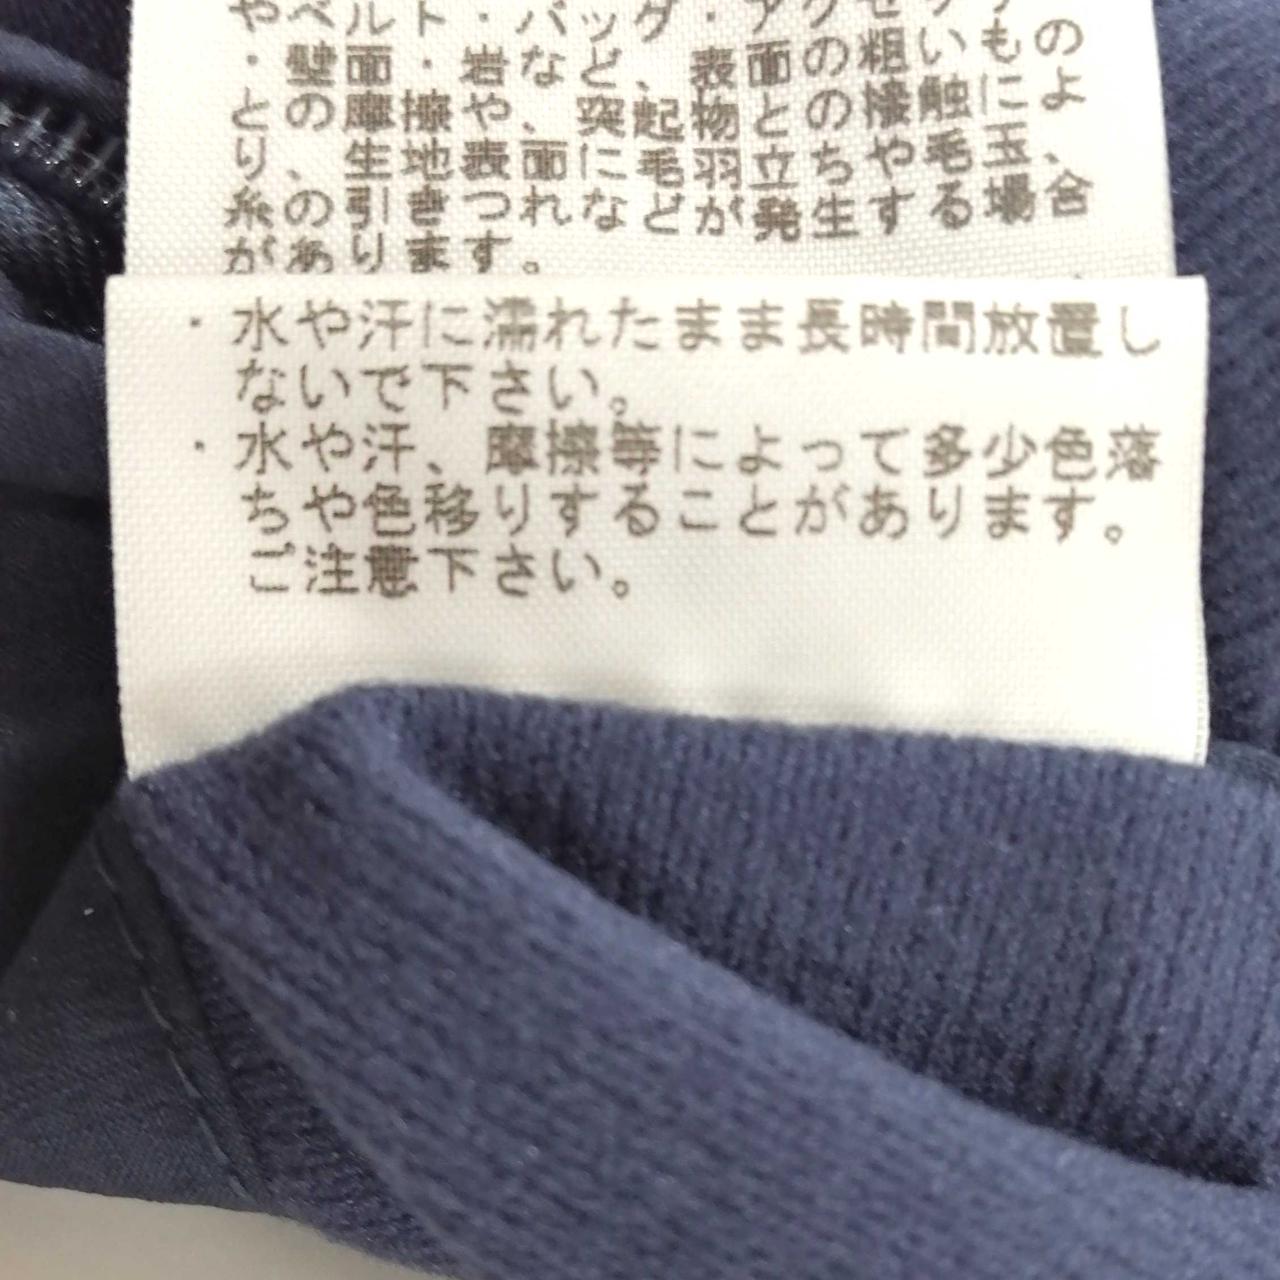 やベルト・バッグ・アクセサリー
・壁面・岩など、表面の粗いもの
との摩擦や、突起物との接触によ
り、生地表面に毛羽立ちや毛玉、
糸の引きつれなどが発生する場合
があります。
・水や汗に濡れたまま長時間放置し
ないで下さい。
・水や汗、摩擦等によって多少色落
ちや色移りすることがあります。
ご注意下さい。